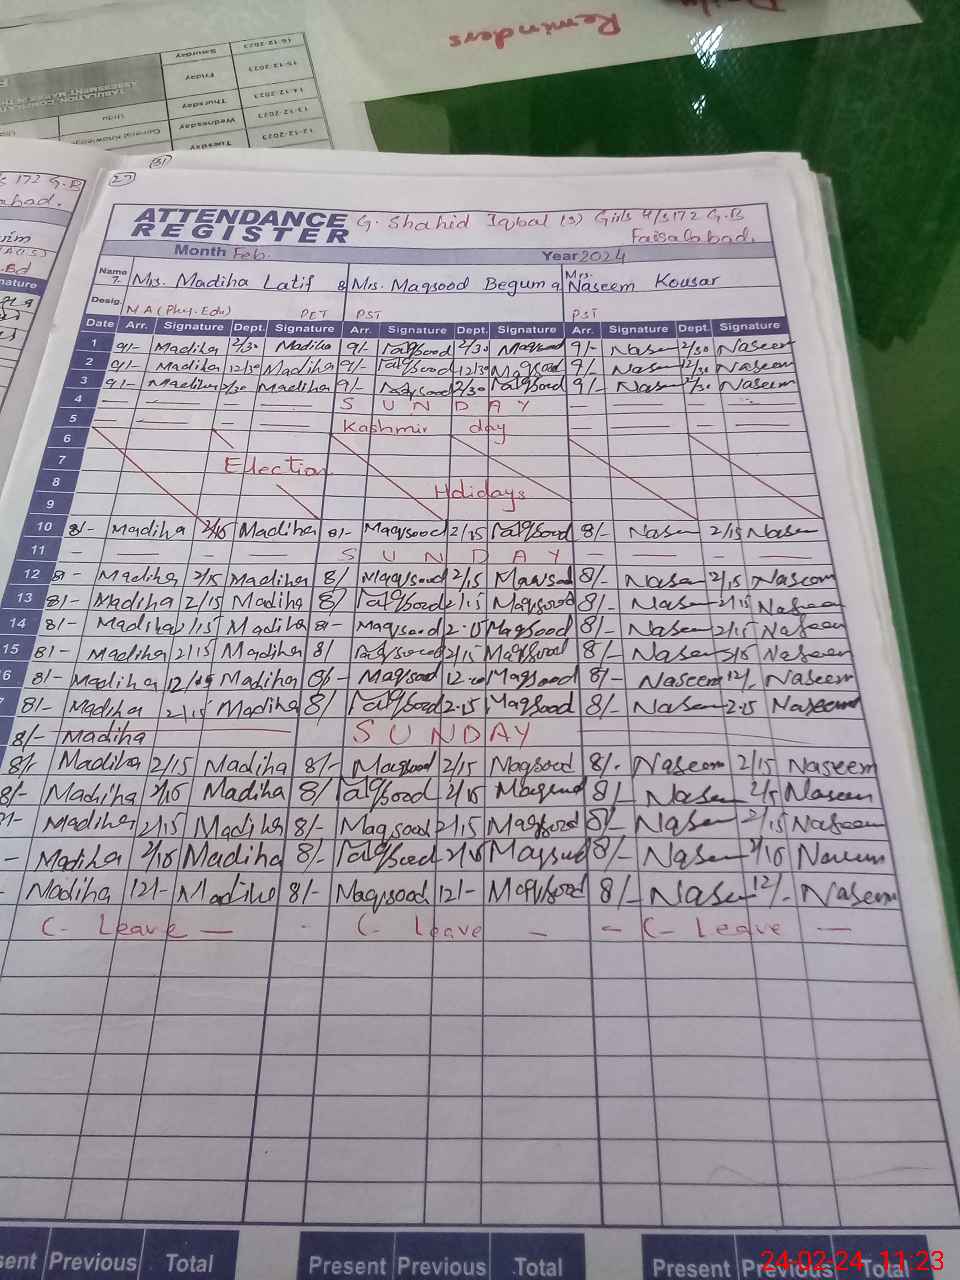 Reminders
16-12-2023 Saturday
15-12-2023 Friday
14-12-2023 Thursday
13-12-2023 Wednesday
12-12-2023 Tuesday
Urdu
General Knowledge
31
s 172 G.B
abad.
ATTENDANCE REGISTER G. Shahid Iqbal (S) Girls H/S 172 G.B
Faisalabad.
Month Feb. Year 2024
Name 7. Mrs. Madiha Latif 8 Mrs. Maqsood Begum 9 Mrs. Naseem Kousar
Desig. M A (Phy. Edu) PET PST PST
Date Arr. Signature Dept. Signature Arr. Signature Dept. Signature Arr. Signature Dept. Signature
1 9/- Madiha 2/30 Madiha 9/- Maqsood 2/30 Maqsood 9/- Naseem 2/30 Naseem
2 9/- Madiha 12/30 Madiha 9/- Maqsood 12/30 Maqsood 9/- Naseem 12/30 Naseem
3 9/- Madiha 2/30 Madiha 9/- Maqsood 2/30 Maqsood 9/- Naseem 2/30 Naseem
4 — — — — S U N D A Y — — — —
5 — — — Kashmir day — — — —
6
7 Election
8 Holidays
9
10 8/- Madiha 2/15 Madiha 8/- Maqsood 2/15 Maqsood 8/- Naseem 2/15 Naseem
11 — — — — S U N D A Y — — — —
12 8/- Madiha 2/15 Madiha 8/ Maqsood 2/15 Maqsood 8/- Naseem 2/15 Naseem
13 8/- Madiha 2/15 Madiha 8/ Maqsood 2/15 Maqsood 8/- Naseem 2/15 Naseem
14 8/- Madiha 2/15 Madiha 8/- Maqsood 2.15 Maqsood 8/- Naseem 2/15 Naseem
15 8/- Madiha 2/15 Madiha 8/ Maqsood 2/15 Maqsood 8/- Naseem 2/15 Naseem
6 8/- Madiha 12/ Madiha 8/- Maqsood 12 Maqsood 8/- Naseem 12/- Naseem
8/- Madiha 2/15 Madiha 8/ Maqsood 2.15 Maqsood 8/- Naseem 2.15 Naseem
8/- Madiha S U N D A Y
8/- Madiha 2/15 Madiha 8/- Maqsood 2/15 Maqsood 8/- Naseem 2/15 Naseem
8/- Madiha 2/15 Madiha 8/ Maqsood 2/15 Maqsood 8/- Naseem 2/15 Naseem
8/- Madiha 2/15 Madiha 8/- Maqsood 2/15 Maqsood 8/- Naseem 2/15 Naseem
- Madiha 2/15 Madiha 8/- Maqsood 2/15 Maqsood 8/- Naseem 2/15 Naseem
- Madiha 12/- Madiha 8/- Maqsood 12/- Maqsood 8/- Naseem 12/- Naseem
C- Leave — C- Leave — — C- Leave —
sent Previous Total Present Previous Total Present Previous Total
24-02-24 11:23